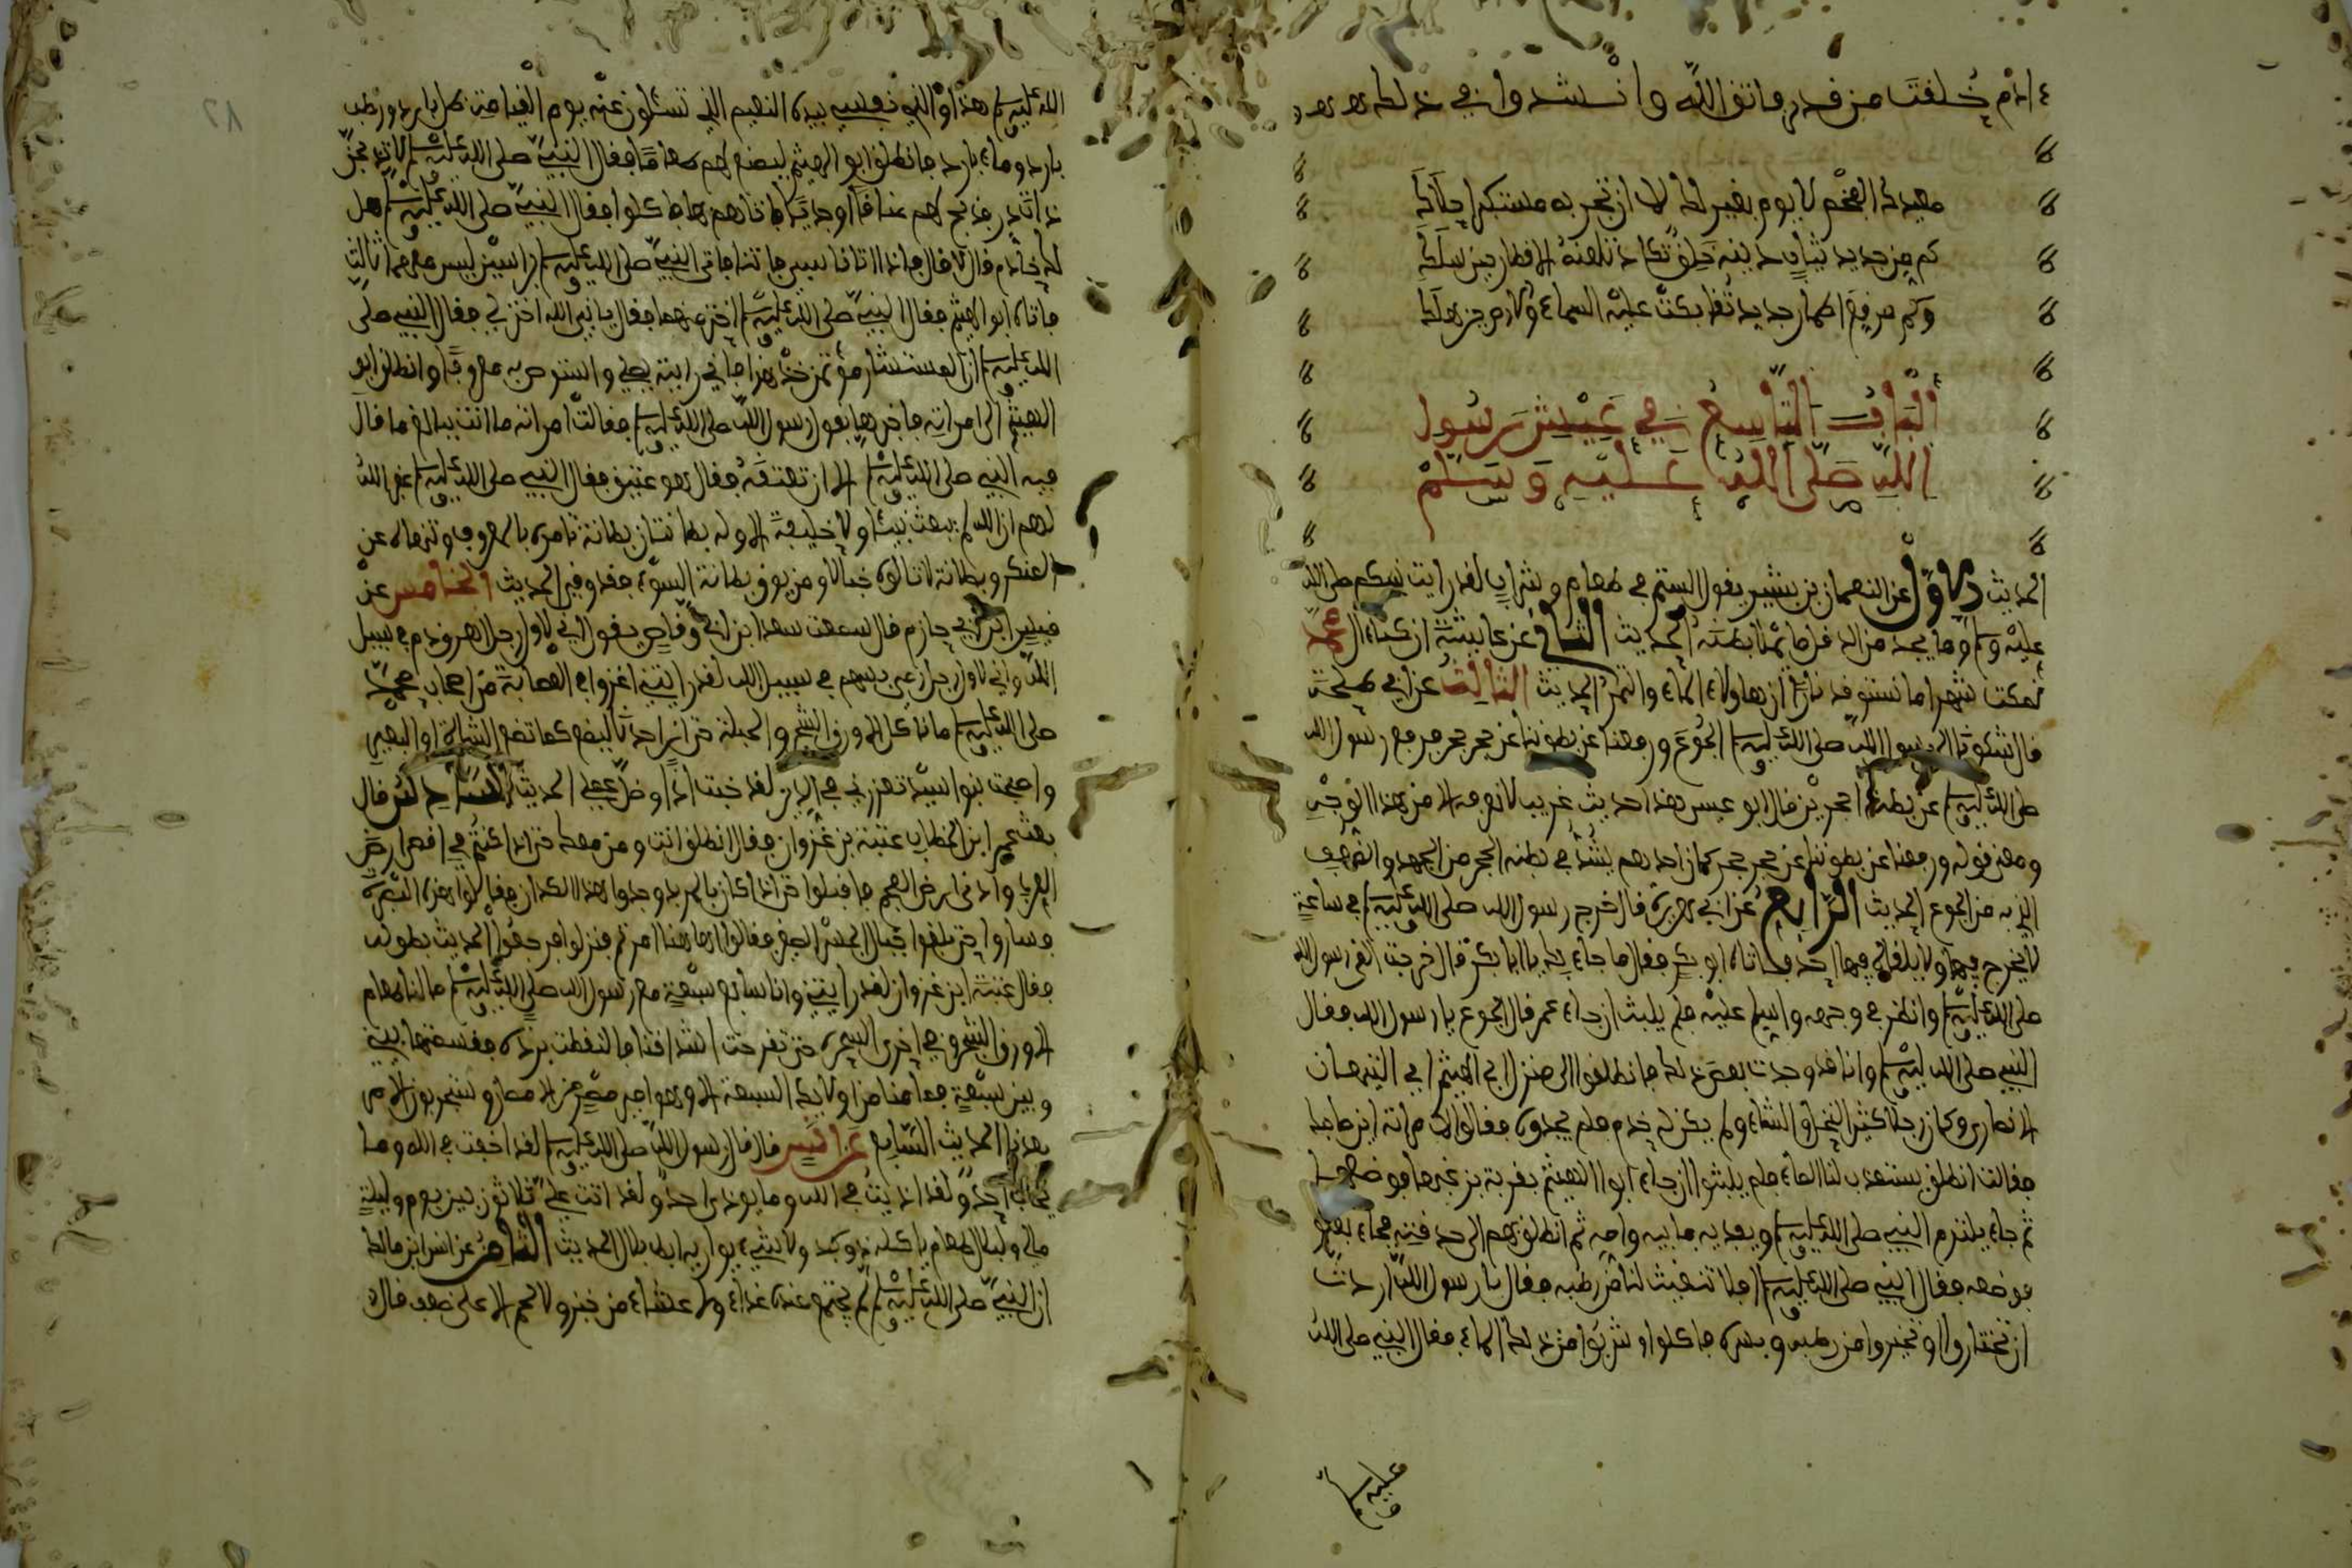 ءادم خلقت من قدر فاتق الله وانشدوا في ذلك
الباب التاسع في عيش رسول
الله صلى الله عليه وسلم
الحديث الاول عن النعمان بن بشير يقول الستم في طعام وشراب لقد رايت نبيكم صلى الله
عليه وسلم وما يجد من الدقل ما يملا بطنه الحديث الثاني عن عايشة ان كنا ءال محمد
نمكث شهرا ما نستوقد نارا ان هاولاء الماء والتمر الحديث الثالث عن ابي طلحة
قال شكونا الى رسول الله صلى الله عليه وسلم الجوع ورفعنا عن بطوننا عن حجر حجر فرفع رسول الله
صلى الله عليه وسلم عن بطنه حجرين قال ابو عيسى هذا حديث غريب لا نعرفه الا من هذا الوجه
ومعنى قوله ورفعنا عن بطوننا عن حجر حجر كان احدهم يشد في بطنه الحجر من الجهد والضعف
الذي به من الجوع الحديث الرابع عن ابي هريرة قال خرج رسول الله صلى الله عليه وسلم في ساعة
لا يخرج فيها ولا يلقاه فيها احد فاتاه ابو بكر فقال ما جاء بك يا ابا بكر قال خرجت القى رسول الله
صلى الله عليه وسلم وانظر في وجهه واسلم عليه فلم يلبث ان جاء عمر قال الجوع يا رسول الله فقال
النبي صلى الله عليه وسلم وانا قد وجدت بعض ذلك فانطلقوا الى منزل ابي الهيثم ابي التيهان
الانصاري وكان رجلا كثير النخل والشاء ولم يكن له خدم فلم يجدوه فقالوا لامراته اين صاحبك
فقالت انطلق يستعذب لنا الماء فلم يلبثوا ان جاء ابو الهيثم بقربة يزعبها فوضعها
ثم جاء يلتزم النبي صلى الله عليه وسلم ويفديه بابيه وامه ثم انطلق بهم الى حديقته فجاء بقنو
فوضعه فقال النبي صلى الله عليه وسلم افلا تنقيت لنا من رطبه فقال يا رسول الله اردت
ان تختاروا او تخيروا من رطبه وبسره فاكلوا وشربوا من ذلك الماء فقال النبي صلى الله
عليه وسلم
الله عليه وسلم هذا والذي نفسي بيده النعيم الذي تسئلون عنه يوم القيامة ظل بارد ورطب
بارد وماء بارد فانطلق ابو الهيثم ليصنع لهم طعاما فقال النبي صلى الله عليه وسلم لا تذبحن
ذات در فذبح لهم عناقا او جديا فاتاهم بها فاكلوا فقال النبي صلى الله عليه وسلم هل
لك خادم قال لا قال فاذا اتانا سبي فاتنا فاتي النبي صلى الله عليه وسلم براسين ليس معهما ثالث
فاتاه ابو الهيثم فقال النبي صلى الله عليه وسلم اختر منهما فقال يا نبي الله اختر لي فقال النبي صلى
الله عليه وسلم ان المستشار موتمن خذ هذا فاني رايته يصلي واستوص به معروفا وانطلق ابو
الهيثم الى امراته فاخبرها بقول رسول الله صلى الله عليه وسلم فقالت امراته ما انت ببالغ ما قال
فيه النبي صلى الله عليه وسلم الا ان تعتقه فقال هو عتيق فقال النبي صلى الله عليه وسلم
ان الله لم يبعث نبيا ولا خليفة الا وله بطانتان بطانة تامره بالمعروف وتنهاه عن
المنكر وبطانة لا تالوه خبالا ومن يوق بطانة السوء فقد وقي الحديث الخامس عن
ابن ابي حازم قال سمعت سعد ابن ابي وقاص يقول اني لاول رجل اهرق دم في سبيل
الله واني لاول رجل رمى بسهم في سبيل الله لقد رايتني اغزوا في العصابة من اصحاب محمد
صلى الله عليه وسلم ما ناكل الا ورق الشجر والحبلة حتى ان احدنا ليضع كما تضع الشاة او البعير
واصبحت بنوا اسد تعزرني في الدين لقد خبت اذا وضل عملي الحديث السادس قال
بعث عمر ابن الخطاب عتبة بن غزوان فقال انطلق انت ومن معك حتى اذا كنتم في اقصى ارض
العرب وادنى ارض العجم فاقبلوا حتى اذا كان بالمربد وجدوا هذا الكذان فقالوا ما هذه البصرة
وساروا حتى بلغوا حيال الجسر الصغير فقالوا هاهنا امرتم فنزلوا فذكروا الحديث بطوله
فقال عتبة ابن غزوان لقد رايتني وانا سابع سبعة مع رسول الله صلى الله عليه وسلم ما لنا طعام
الا ورق الشجر حتى تقرحت اشداقنا فالتقطت بردة فقسمتها بيني
وبين سبعة فما منا من اولايك السبعة الا وهو امير مصر من الامصار وستجربون الامرا
بعدنا الحديث السابع عن انس قال قال رسول الله صلى الله عليه وسلم لقد اخفت في الله وما
يخاف احد ولقد اذيت في الله وما يوذى احد ولقد اتت علي ثلاثون بين يوم وليلة
مالي ولبلال طعام ياكله ذو كبد ولا شيء يواريه ابط بلال الحديث الثامن عن انس ابن مالك
ان النبي صلى الله عليه وسلم لم يجتمع عنده غداء ولا عشاء من خبز ولا لحم الا على ضفف قال